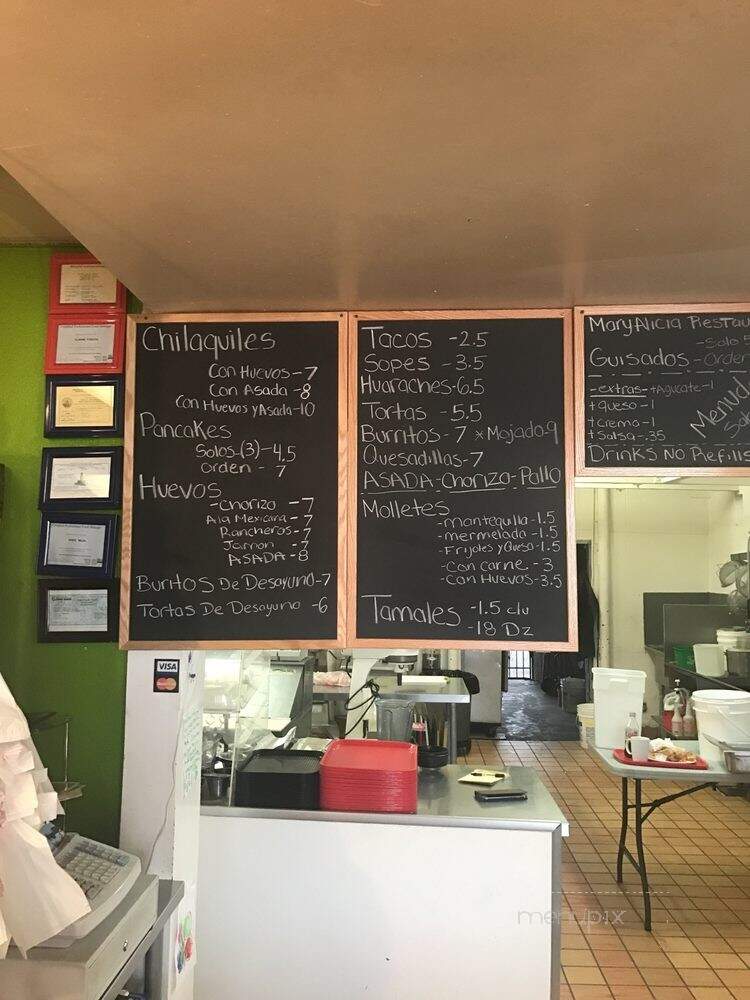 Chilaquiles
Con Huevos - 7
Con Asada - 8
Con Huevos y Asada - 10
Pancakes
Solos (3) - 4.5
Orden - 7
Huevos
- Chorizo - 7
Ala Mexicana - 7
Rancheros - 7
Jamon - 7
ASADA - 8
Buritos De Desayuno - 7
Tortas De Desayuno - 6
Tacos - 2.5
Sopes - 3.5
Huaraches - 6.5
Tortas - 5.5
Burritos - 7 x Mojado - 9
Quesadillas - 7
ASADA - Chorizo - Pollo
Molletes
- mantequilla - 1.5
- mermelada - 1.5
- Frijoles y Queso - 1.5
- con carne - 3
- con Huevos - 3.5
Tamales - 1.5 c/u
- 18 Dz
MaryAlicia Restau
- Solo 5
Guisados - Orden
- extras - + Agucate - 1
+ queso - 1
+ crema - 1
+ Salsa - .35
Menud
Sol
Drinks No Refills
VISA
MasterCard
menupix